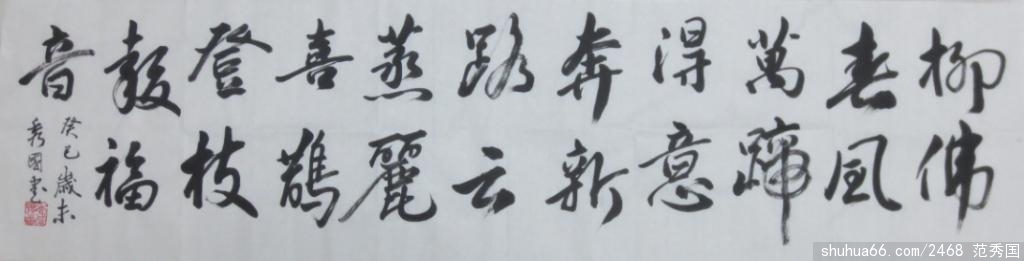 柳拂
春風
萬蹄
得意
奔新
路云
蒸麗
喜鵲
登枝
報福
音
癸巳歲末
秀國書
shuhua66.com/2468 范秀国